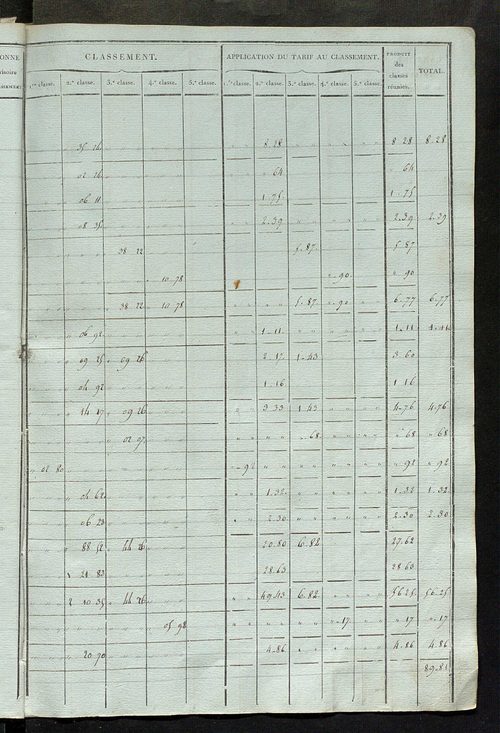 ONNE CLASSEMENT. APPLICATION DU TARIF AU CLASSEMENT. PRODUIT des classes réunies. TOTAL.
1.re classe. 2.e classe. 3.e classe. 4.e classe. 5.e classe. 1.re classe. 2.e classe. 3.e classe. 4.e classe. 5.e classe.
35 26 8 28 8 28 8 28
02 26 64 64
06 11 1 75 1 75
08 35 2 39 2 39 2 39
38 22 5 87 5 87
10 78 90 90
38 22 10 78 5 87 90 6 77 6 77
06 92 1 11 1 11
09 25 09 26 2 17 1 43 3 60
04 92 1 16 1 16
14 17 09 26 3 33 1 43 4 76 4 76
02 97 68 68 68
02 80 92 92 92
04 62 1 32 1 32 1 32
06 23 2 30 2 30 2 30
88 52 44 26 20 80 6 82 27 62
1 21 83 28 63 28 63
2 10 35 44 26 49 43 6 82 56 25 56 25
05 98 17 17 17
20 70 4 86 4 86 4 86